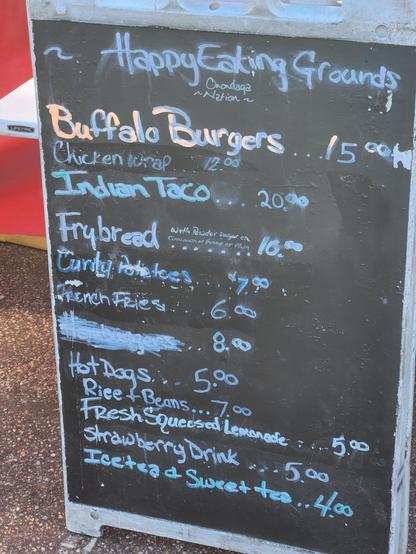 ~ Happy Eating Grounds
Onondaga
~ Nation ~
Buffalo Burgers ... 15.00
Chicken Wrap 12.00
Indian Taco .... 20.00
Frybread With Powder Sugar or
Cinnamon or Honey or Plain ....... 10.00
Curly Potatoes ... $7.00
French Fries ... 6.00
8.00
Hot Dogs.... 5.00
Rice + Beans...7.00
Fresh Squeesed Lemonade ... 5.00
Strawberry Drink ... 5.00
Icetea & Sweet tea..4.00